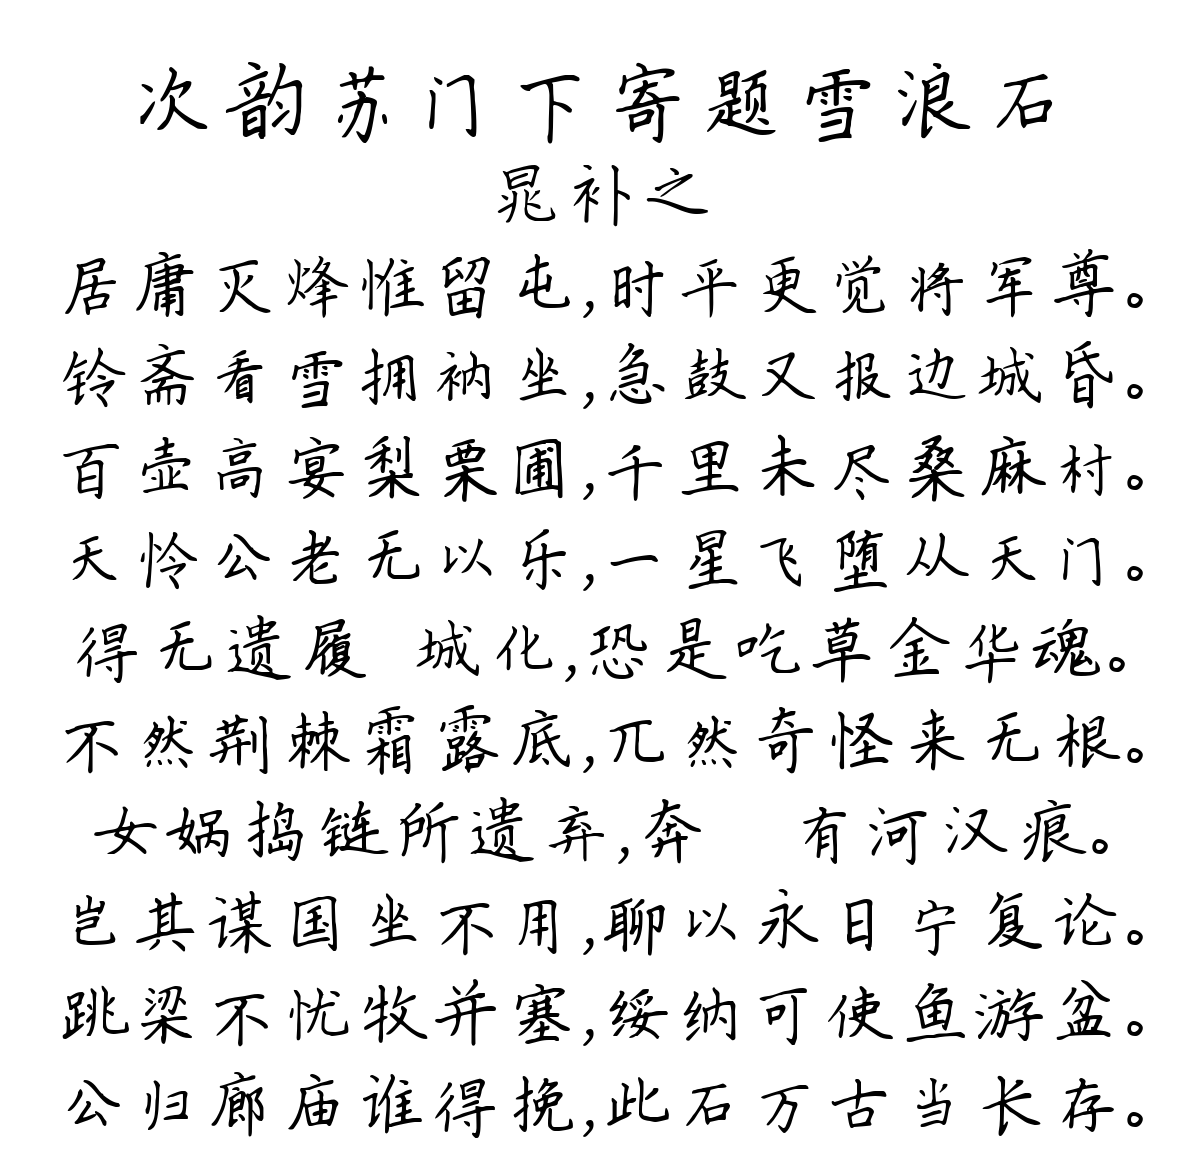 次韵苏门下寄题雪浪石
晁补之
居庸灭烽惟留屯,时平更觉将军尊。
铃斋看雪拥衲坐,急鼓又报边城昏。
百壶高宴梨栗圃,千里未尽桑麻村。
天怜公老无以乐,一星飞堕从天门。
得无遗履 城化,恐是吃草金华魂。
不然荆棘霜露底,兀然奇怪来无根。
女娲捣链所遗弃,奔 有河汉痕。
岂其谋国坐不用,聊以永日宁复论。
跳梁不忧牧并塞,绥纳可使鱼游盆。
公归廊庙谁得挽,此石万古当长存。